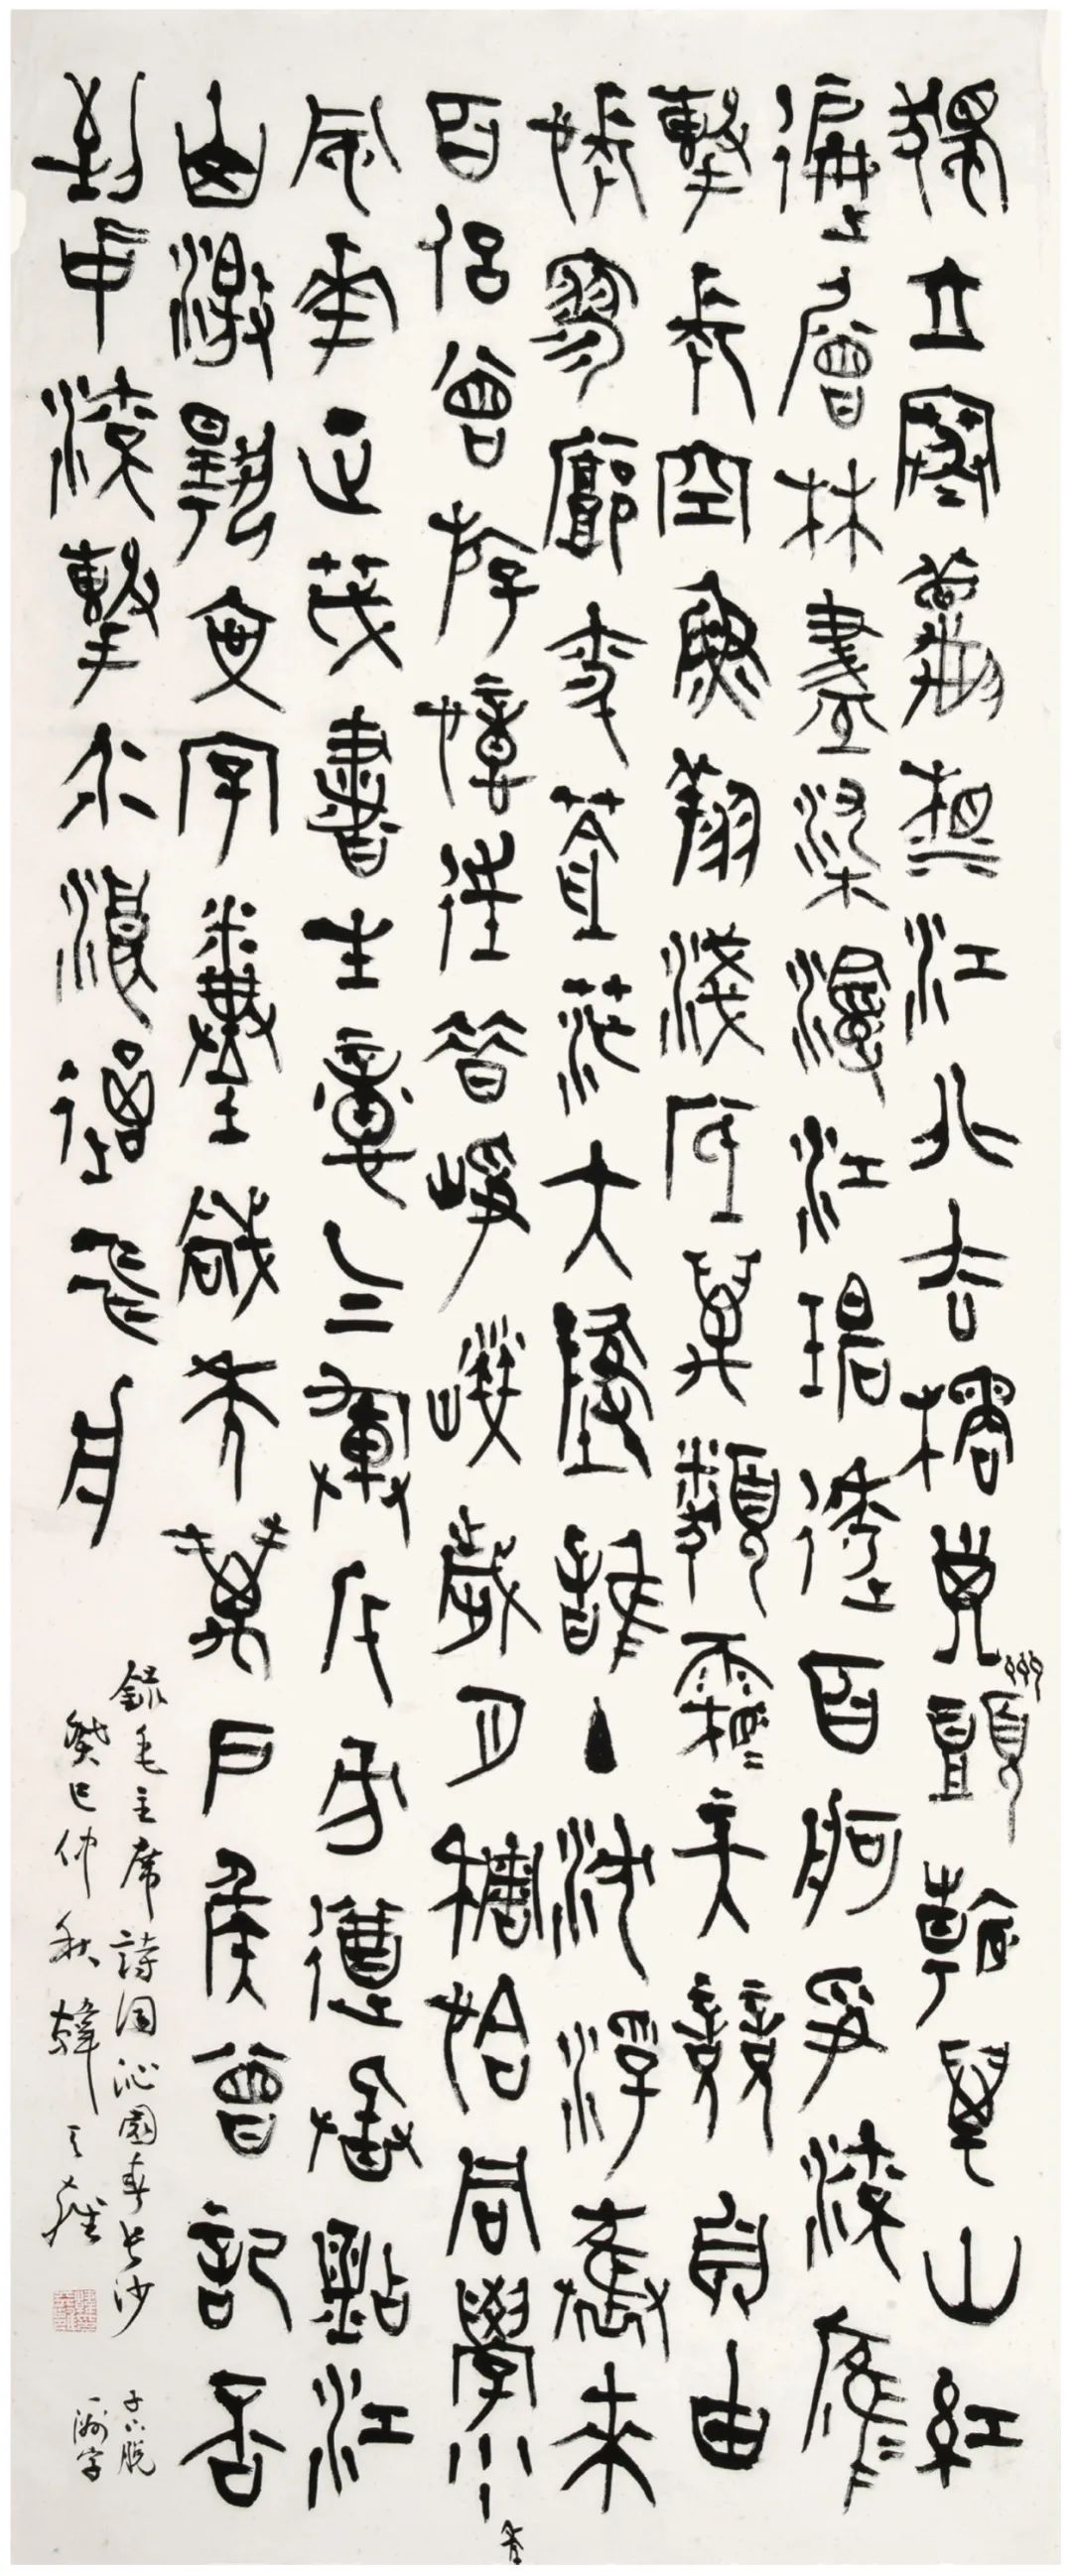 獨立寒秋湘江北去橘子洲頭看萬山紅
遍層林盡染漫江碧透百舸爭流鷹
擊長空魚翔淺底萬類霜天競自由
悵寥廓問蒼茫大地誰主沉浮攜來
百侶曾游憶往昔崢嶸歲月稠恰同學少年
風華正茂書生意氣揮斥方遒指點江
山激揚文字糞土當年萬戶侯曾記否
到中流擊水浪遏飛舟
錄毛主席詩詞沁園春長沙
癸巳仲秋韓天雍
子下脱
一洲字